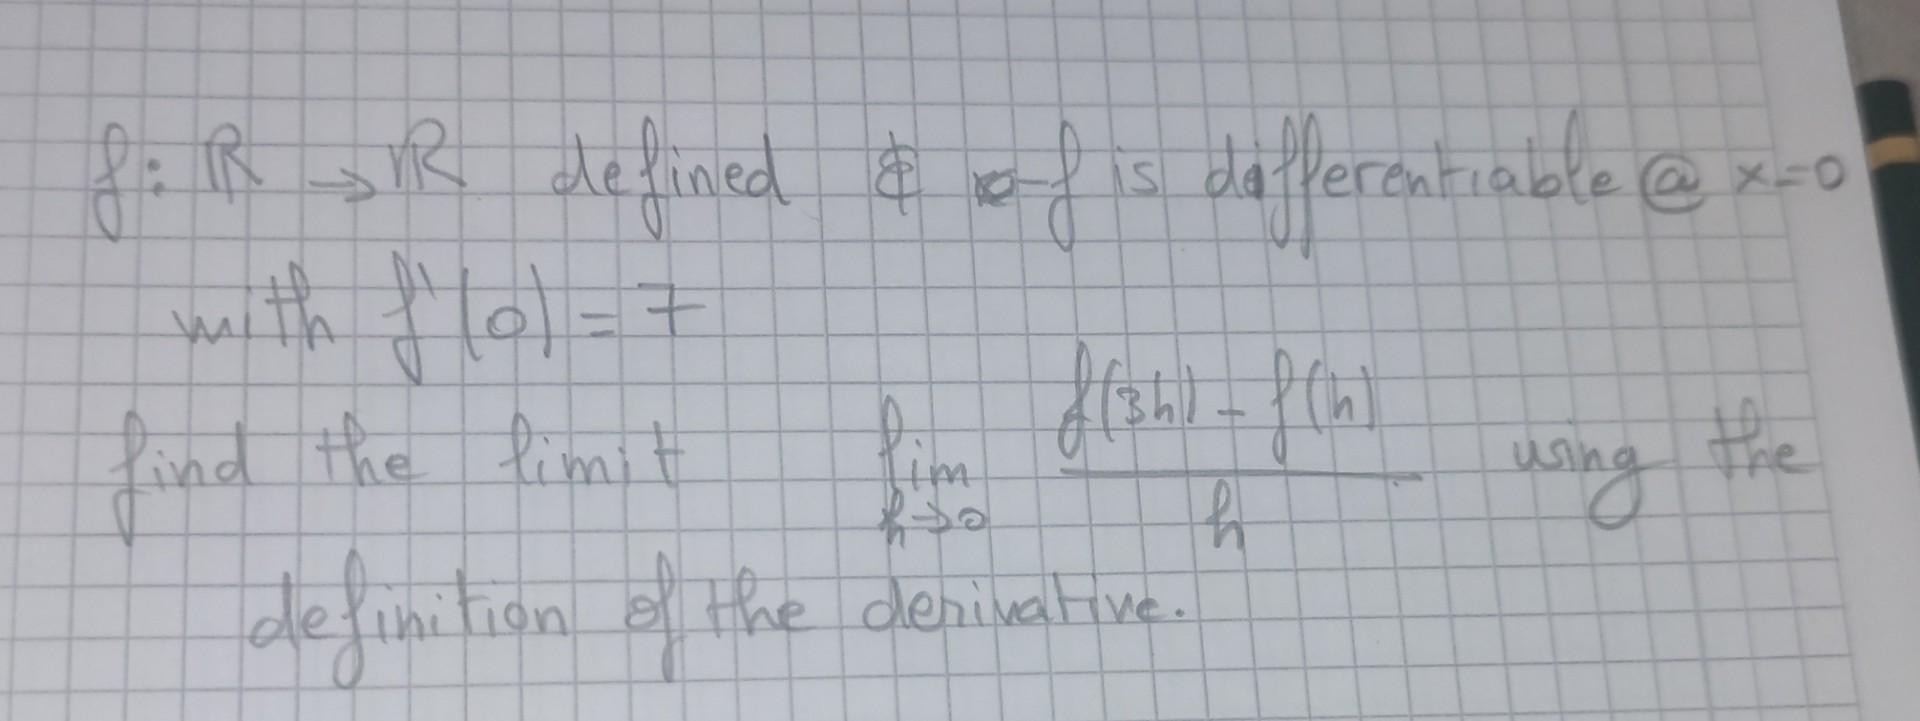 f: ℝ → ℝ defined & f is differentiable @ x=0
with f'(0) = 7
find the limit lim h→0 (f(3h) - f(h))/h using the
definition of the derivative.